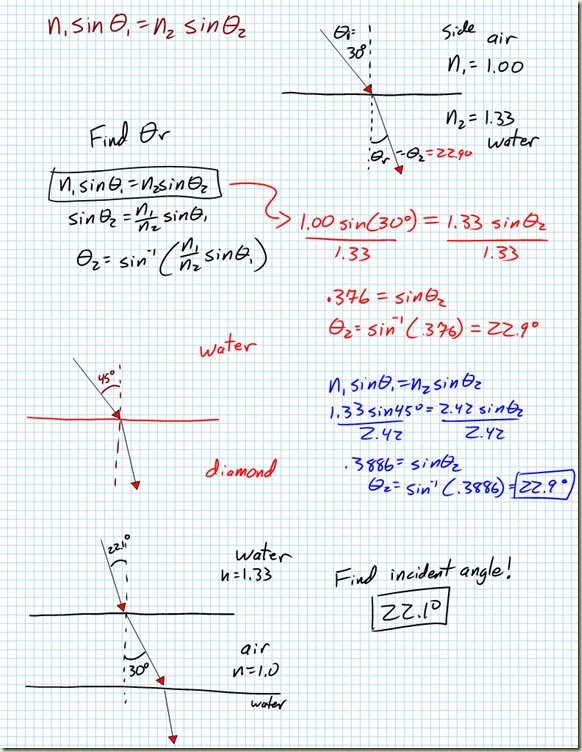 n₁ sinθ₁ = n₂ sinθ₂
θᵢ=
30°
side air
n₁ = 1.00
n₂ = 1.33
water
θr = θ₂ = 22.9°
Find θr
n₁ sinθ₁ = n₂ sinθ₂
sinθ₂ = n₁/n₂ sinθ₁
θ₂ = sin⁻¹ (n₁/n₂ sinθ₁)
1.00 sin(30°) / 1.33 = 1.33 sinθ₂ / 1.33
.376 = sinθ₂
θ₂ = sin⁻¹ (.376) = 22.9°
water
45°
diamond
n₁ sinθ₁ = n₂ sinθ₂
1.33 sin45° / 2.42 = 2.42 sinθ₂ / 2.42
.3886 = sinθ₂
θ₂ = sin⁻¹ (.3886) = 22.9°
22.1°
water
n=1.33
30°
air
n=1.0
water
Find incident angle!
22.1°